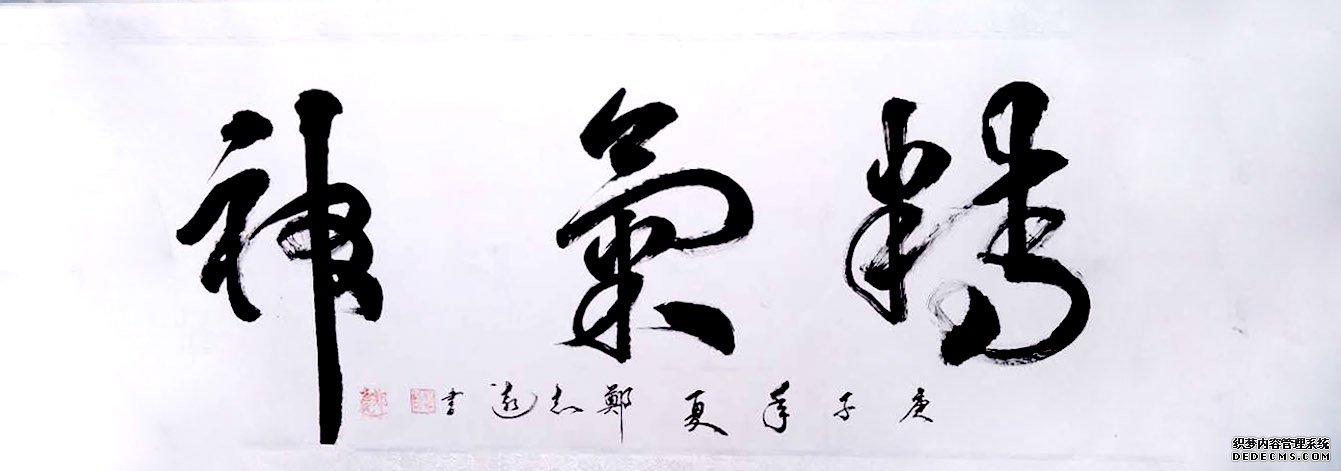 精氣神
庚子年夏鄭志遠書
织梦内容管理系统
DEDECMS.COM